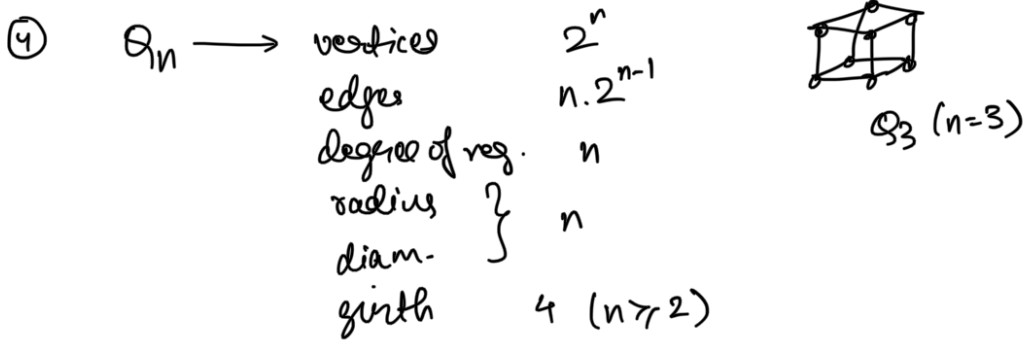 ④ Qn ⟶ vertices 2^n
edges n.2^(n-1)
degree of reg. n
radius } n
diam.
girth 4 (n⩾2)
Q3 (n=3)